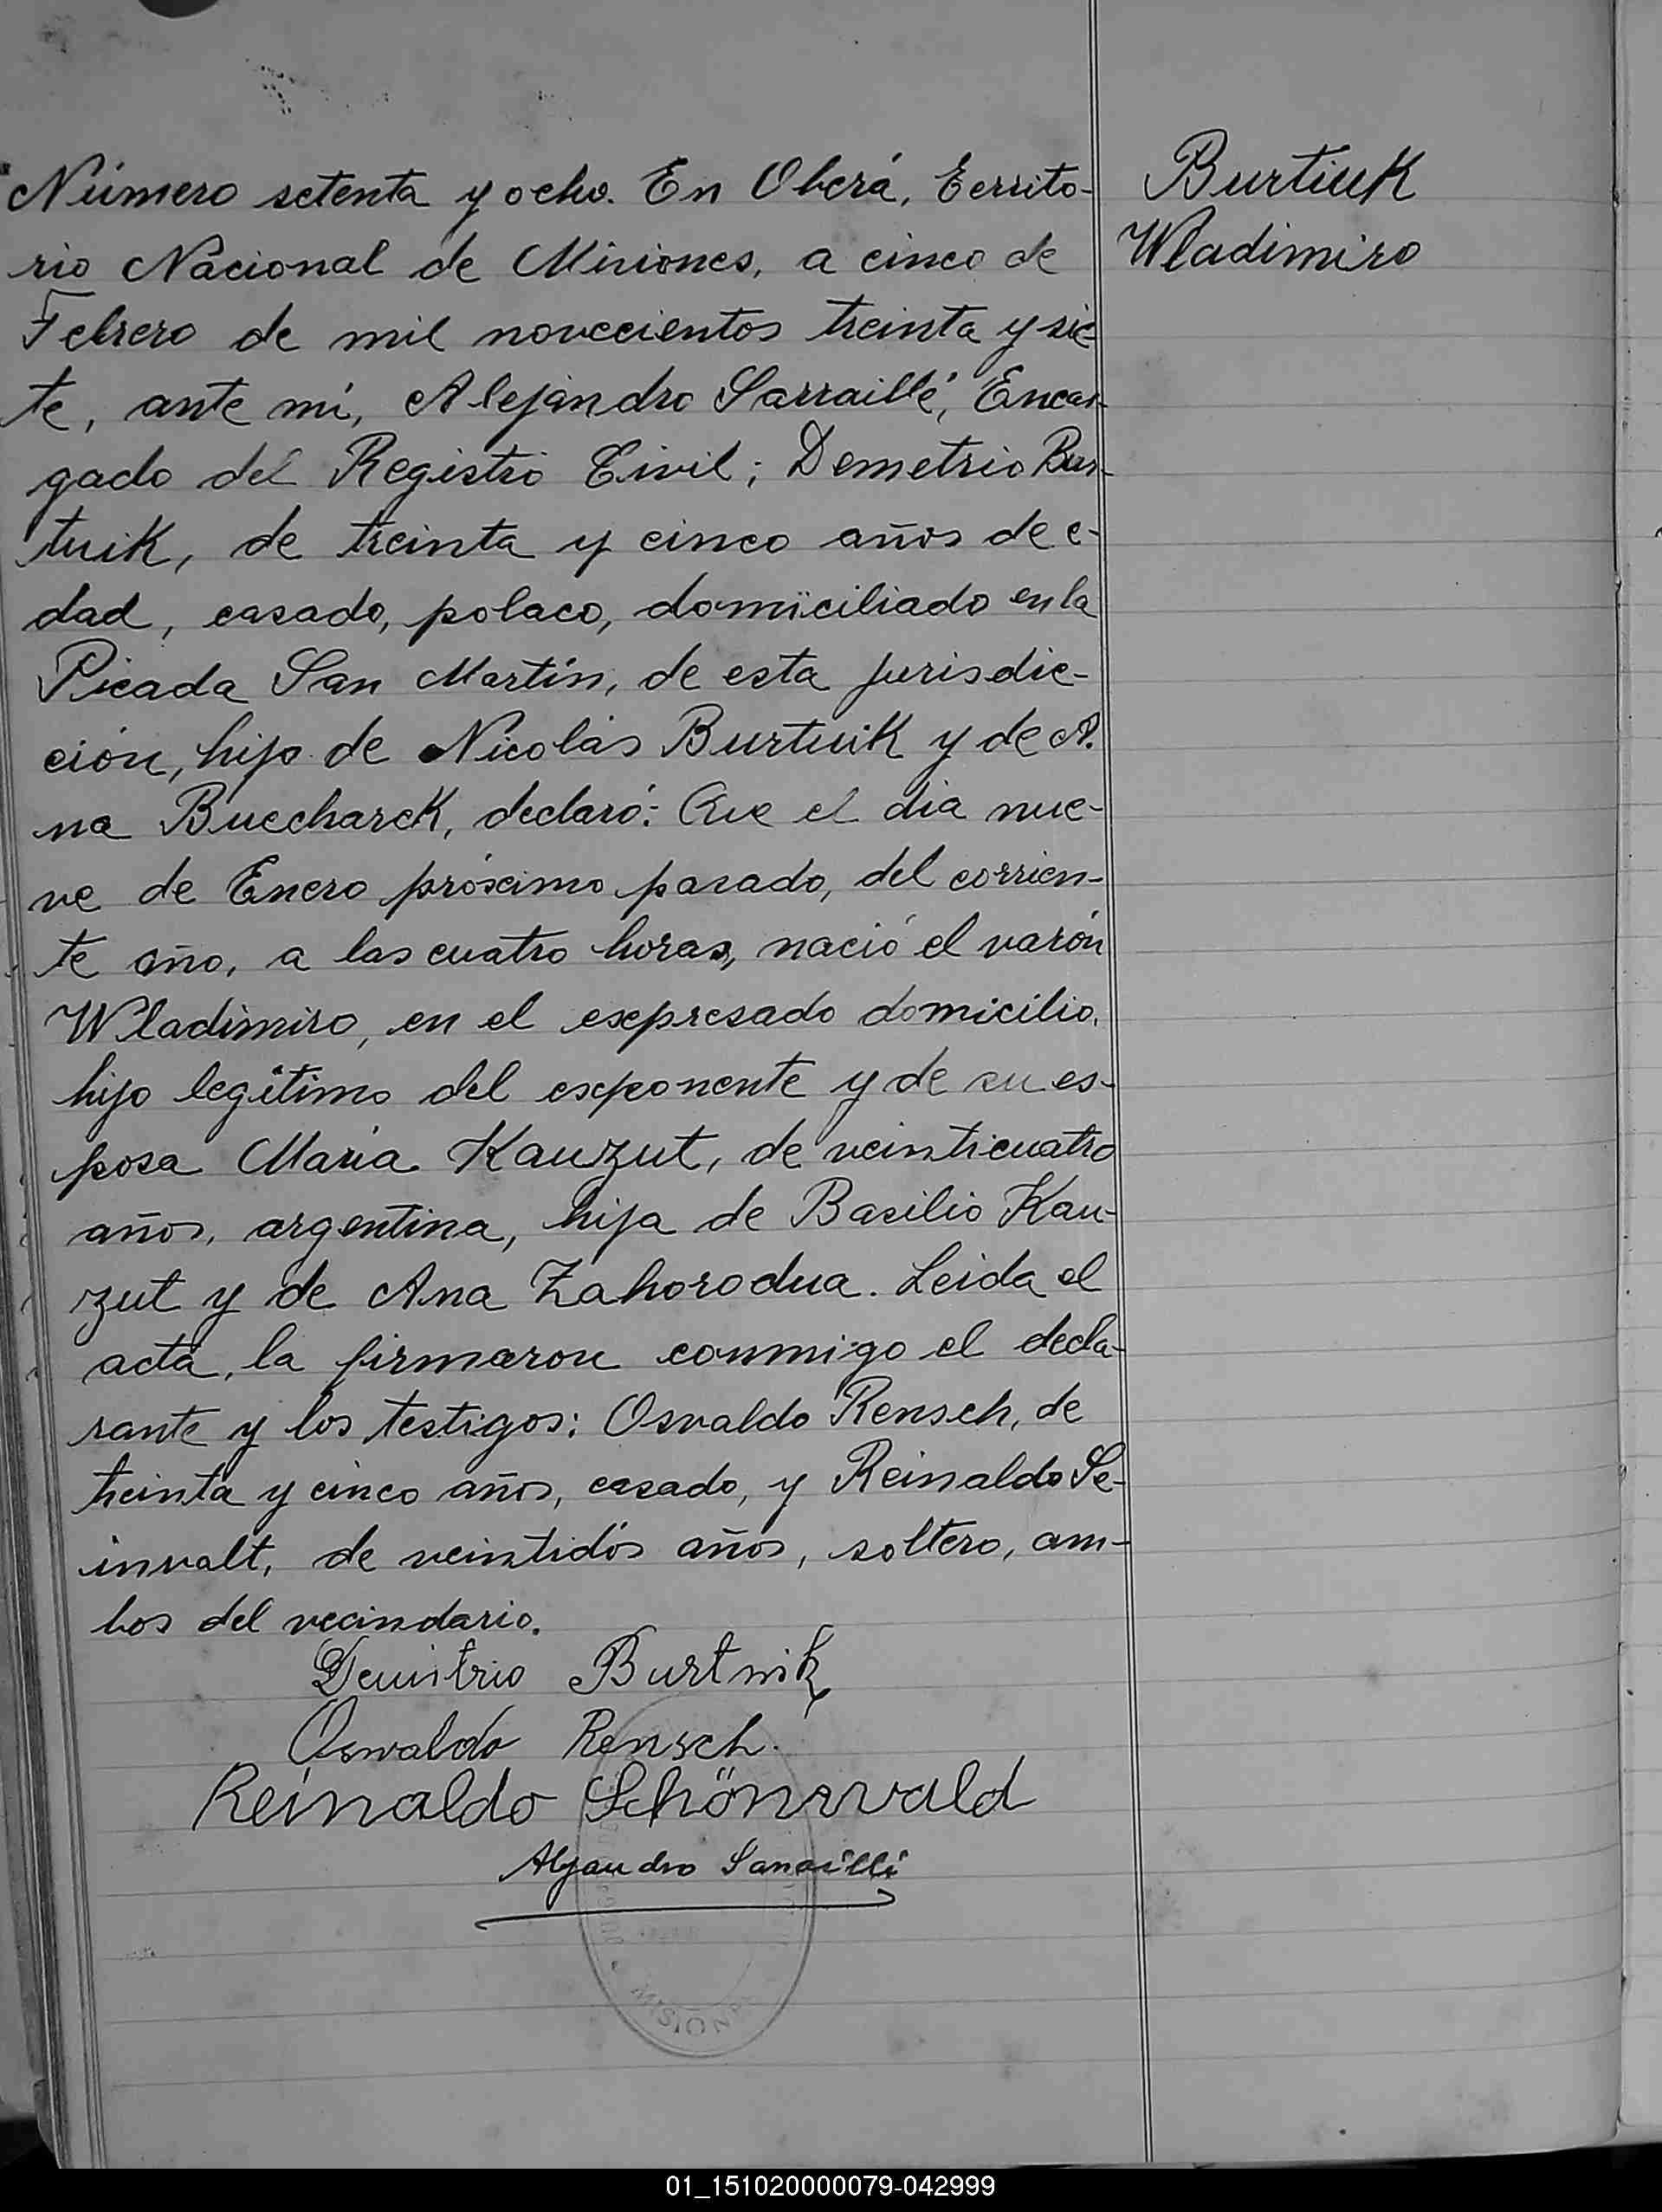 Número setenta y ocho. En Oberá, Territo-
rio Nacional de Misiones, a cinco de
Febrero de mil novecientos treinta y sie-
te, ante mí, Alejandro Sarraillé, Encar-
gado del Registro Civil; Demetrio Bur-
tuik, de treinta y cinco años de e-
dad, casado, polaco, domiciliado en la
Picada San Martín, de esta jurisdic-
ción, hijo de Nicolás Burtuik y de A.
na Buccharek, declaró: Que el dia nue-
ve de Enero próximo pasado, del corrien-
te año, a las cuatro horas, nació el varón
Wladimiro, en el expresado domicilio,
hijo legítimo del exponente y de su es-
posa María Kauzut, de veinticuatro
años, argentina, hija de Basilio Kau-
zut y de Ana Zahorodua. Leida el
acta, la firmaron conmigo el decla-
rante y los testigos: Osvaldo Rensch, de
treinta y cinco años, casado, y Reinaldo Se-
invalt, de veintidós años, soltero, am-
bos del vecindario.
Demitrio Burtnik
Oswaldo Rensch.
Reinaldo Schönwald
Alejandro Sarraillé
Burtiuk
Wladimiro
MISIONES
01_151020000079-042999